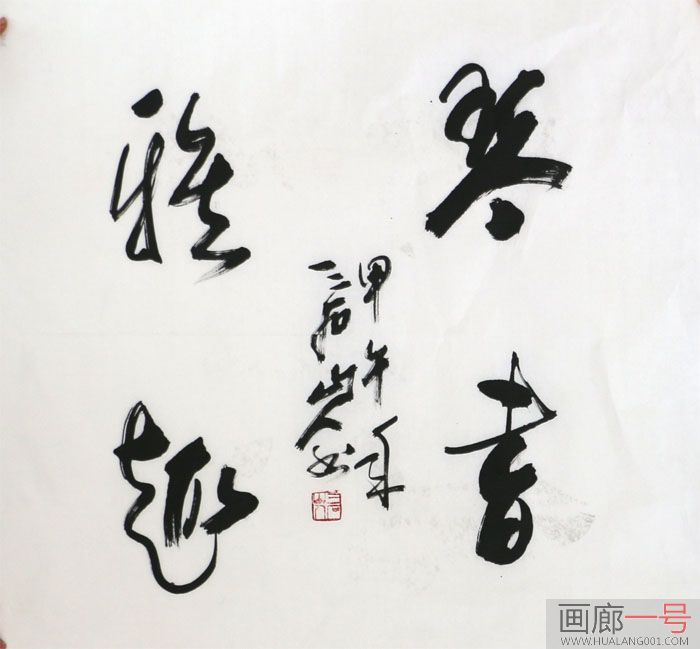 琴書
雅趣
甲午年
山人书
画廊一号
WWW.HUALANG001.COM